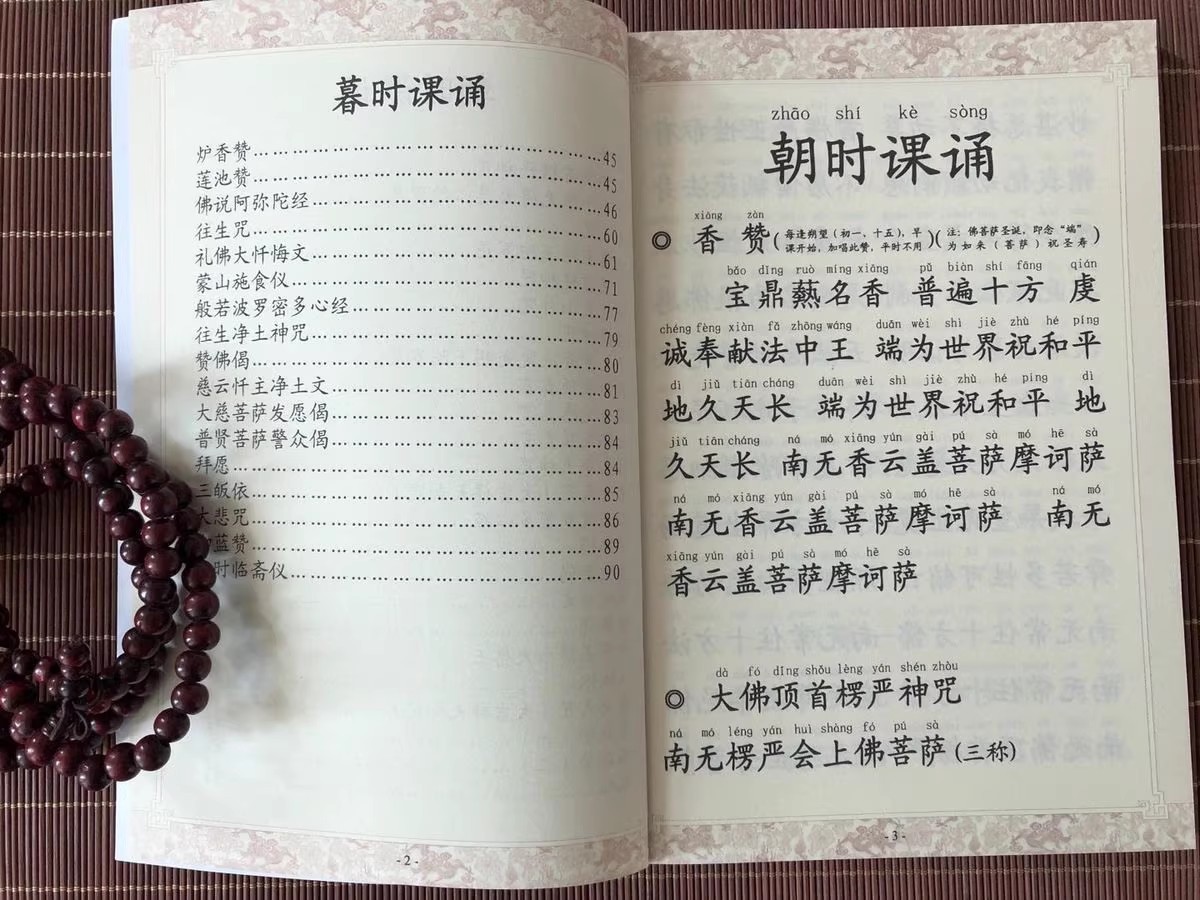 暮时课诵
炉香赞…………………………………45
莲池赞…………………………………45
佛说阿弥陀经…………………………………46
往生咒…………………………………60
礼佛大忏悔文…………………………………61
蒙山施食仪…………………………………71
般若波罗密多心经…………………………………77
往生净土神咒…………………………………79
赞佛偈…………………………………80
慈云忏主净土文…………………………………81
大慈菩萨发愿偈…………………………………83
普贤菩萨警众偈…………………………………84
拜愿…………………………………84
三皈依…………………………………85
大悲咒…………………………………86
蓝赞…………………………………89
时临斋仪…………………………………90
- 2 -
zhāo shí kè sòng
朝时课诵
xiāng zàn
◎ 香赞(每逢朔望(初一、十五),早课开始,加唱此赞,平时不用)(注:佛菩萨圣诞,即念“端”为如来(菩萨)祝圣寿)
bǎo dǐng ruò míng xiāng pǔ biàn shí fāng qián
宝鼎爇名香 普遍十方 虔
chéng fèng xiàn fǎ zhōng wáng duān wèi shì jiè zhù hé píng
诚奉献法中王 端为世界祝和平
dì jiǔ tiān cháng duān wèi shì jiè zhù hé píng dì
地久天长 端为世界祝和平 地
jiǔ tiān cháng ná mó xiāng yún gài pú sà mó hē sà
久天长 南无香云盖菩萨摩诃萨
ná mó xiāng yún gài pú sà mó hē sà ná mó
南无香云盖菩萨摩诃萨 南无
xiāng yún gài pú sà mó hē sà
香云盖菩萨摩诃萨
dà fó dǐng shǒu lèng yán shén zhòu
◎ 大佛顶首楞严神咒
ná mó léng yán huì shàng fó pú sà
南无楞严会上佛菩萨(三称)
- 3 -